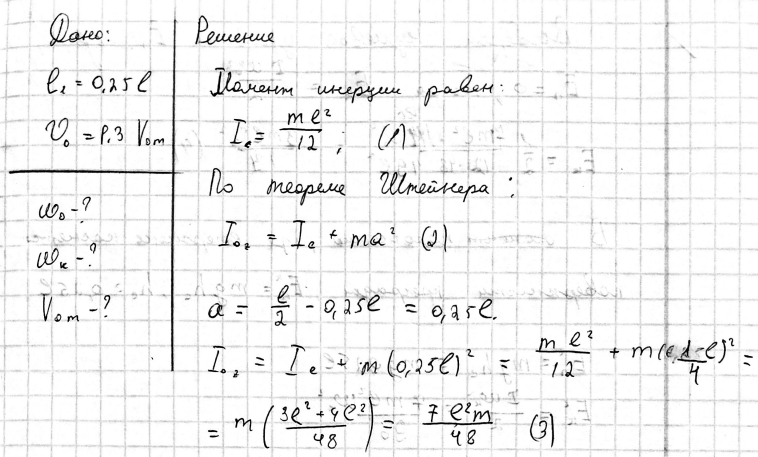 Дано:
l₂ = 0,25l
V₀ = 1.3 V₀m
ω₀ - ?
ωк - ?
V₀m - ?
Решение
Момент инерции равен:
Iс = ml²/12 ; (1)
По теореме Штейнера :
I₀₂ = Iс + ma² (2)
a = l/2 - 0,25l = 0,25l.
I₀₂ = Iс + m(0,25l)² = ml²/12 + m =
= m(3l² + 4l²/48) = 7l²m/48 (3)